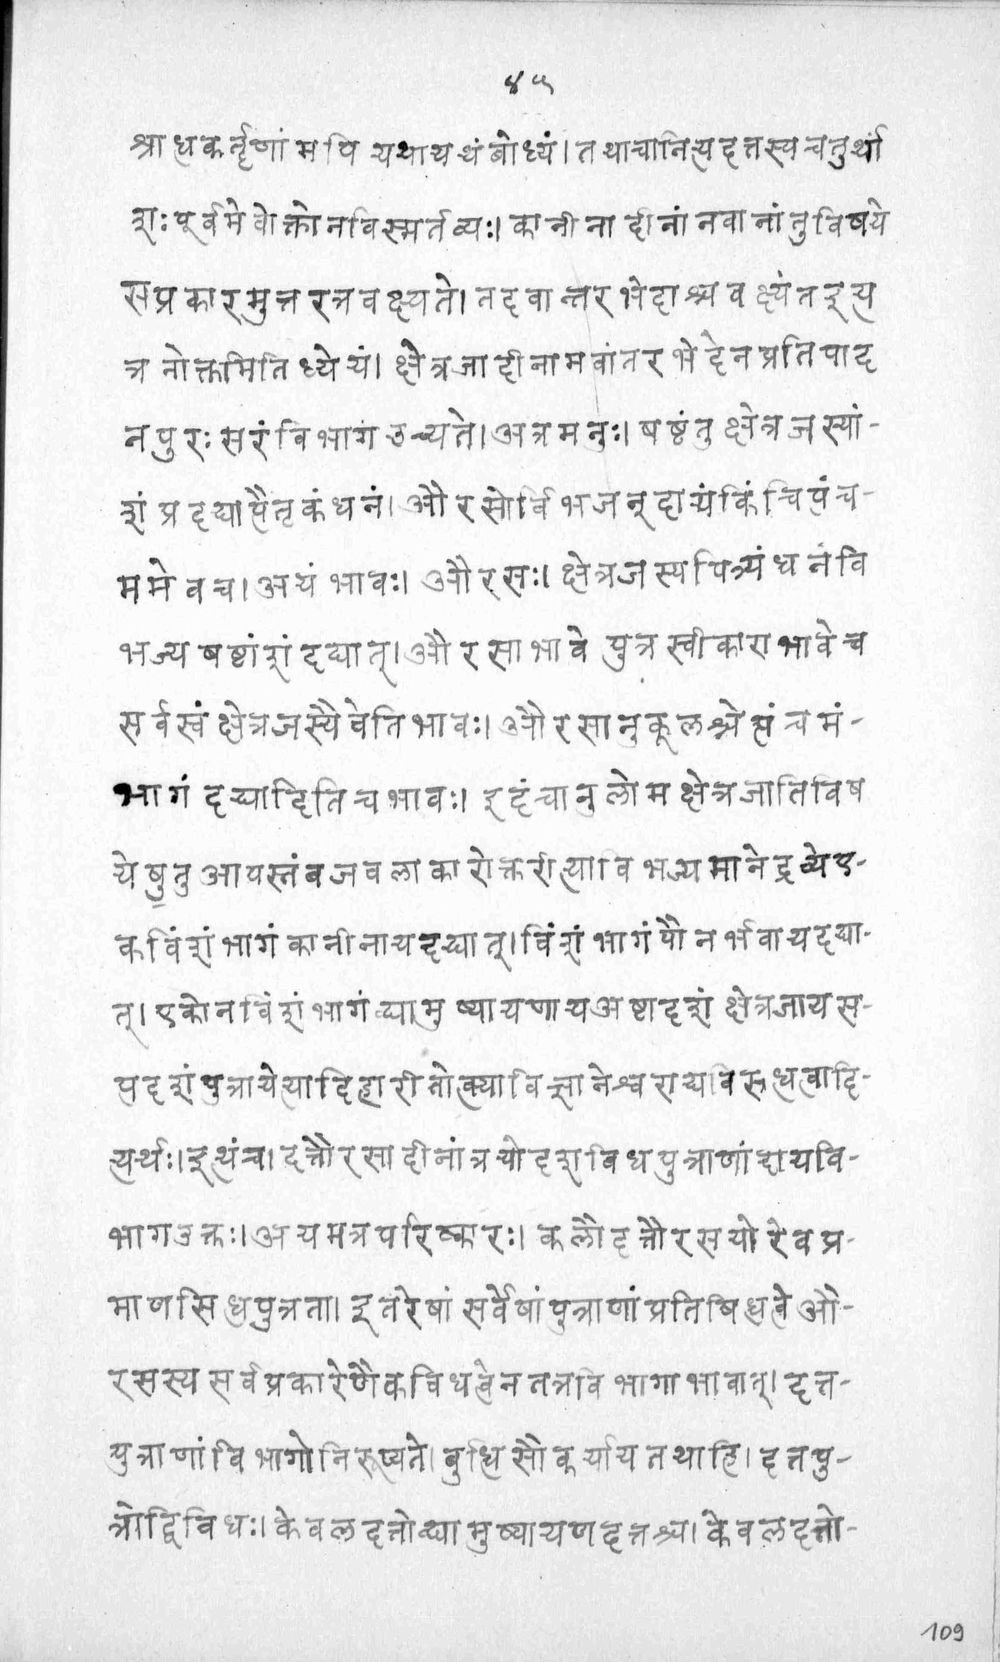 ४५
श्राधकर्तॄणांमपि यथायथंबोध्यं। तथाचानित्यदत्तस्यचतुर्थां
शः पूर्वमेवोक्तोनविस्मर्तव्यः। कानीनादीनांनवानांतुविषये
सप्रकारमुत्तरत्रवक्ष्यते। तदवान्तरभेदाश्चवक्ष्यंतइत्य
त्रनोक्तमितिध्येयं। क्षेत्रजादीनामवांतरभेदेनप्रतिपाद
नपुरःसरंविभागंउच्यते। अत्रमनुः। षष्ठंतुक्षेत्रजस्यां-
शंप्रदद्यात्पैतृकंधनं। औरसोविभजन्दायंकिंचिपंच-
ममेवच। अयंभावः। औरसः। क्षेत्रजस्यपित्र्यंधनंवि
भज्यषष्ठांशंदद्यात्। औरसाभावेपुत्रस्वीकाराभावेच
सर्वस्वंक्षेत्रजस्यैवेतिभावः। औरसानुकूलश्चेत्पंचमं-
भागंदद्यादितिचभावः। इदंचानुलोमक्षेत्रजातिविष
येषुतुआपस्तंबजवलाकारोक्तरीत्याविभज्यमानेद्रव्येए-
कविंशंभागंकानीनायदद्यात्। विंशंभागंपौनर्भवायदद्या-
त्। एकोनविंशंभागंद्यामुष्यायणायअष्टादशंक्षेत्रजायस-
प्तदशंपुत्रायेत्यादिहारीतोक्त्याविज्ञानेश्वराद्यविरुधत्वादि-
त्यर्थः। इत्थंच। दत्तौरसादीनांत्रयोदशविधपुत्राणांदायवि-
भागउक्तः। अयमत्रपरिष्कारः। कलौदत्तौरसयोरेवप्र-
माणसिधपुत्रता। इतरेषांसर्वेषांपुत्राणांप्रतिषिधत्वेऔ-
रसस्यसर्वप्रकारेणैकविधत्वेनतत्रविभागाभावात्। दत्त-
पुत्राणांविभागोनिरूप्यते। बुधिसौकर्याय तथाहि। दत्तपु-
त्रोद्विविधः। केवलदत्तोद्यामुष्यायणदत्तश्च। केवलदत्तो-
109